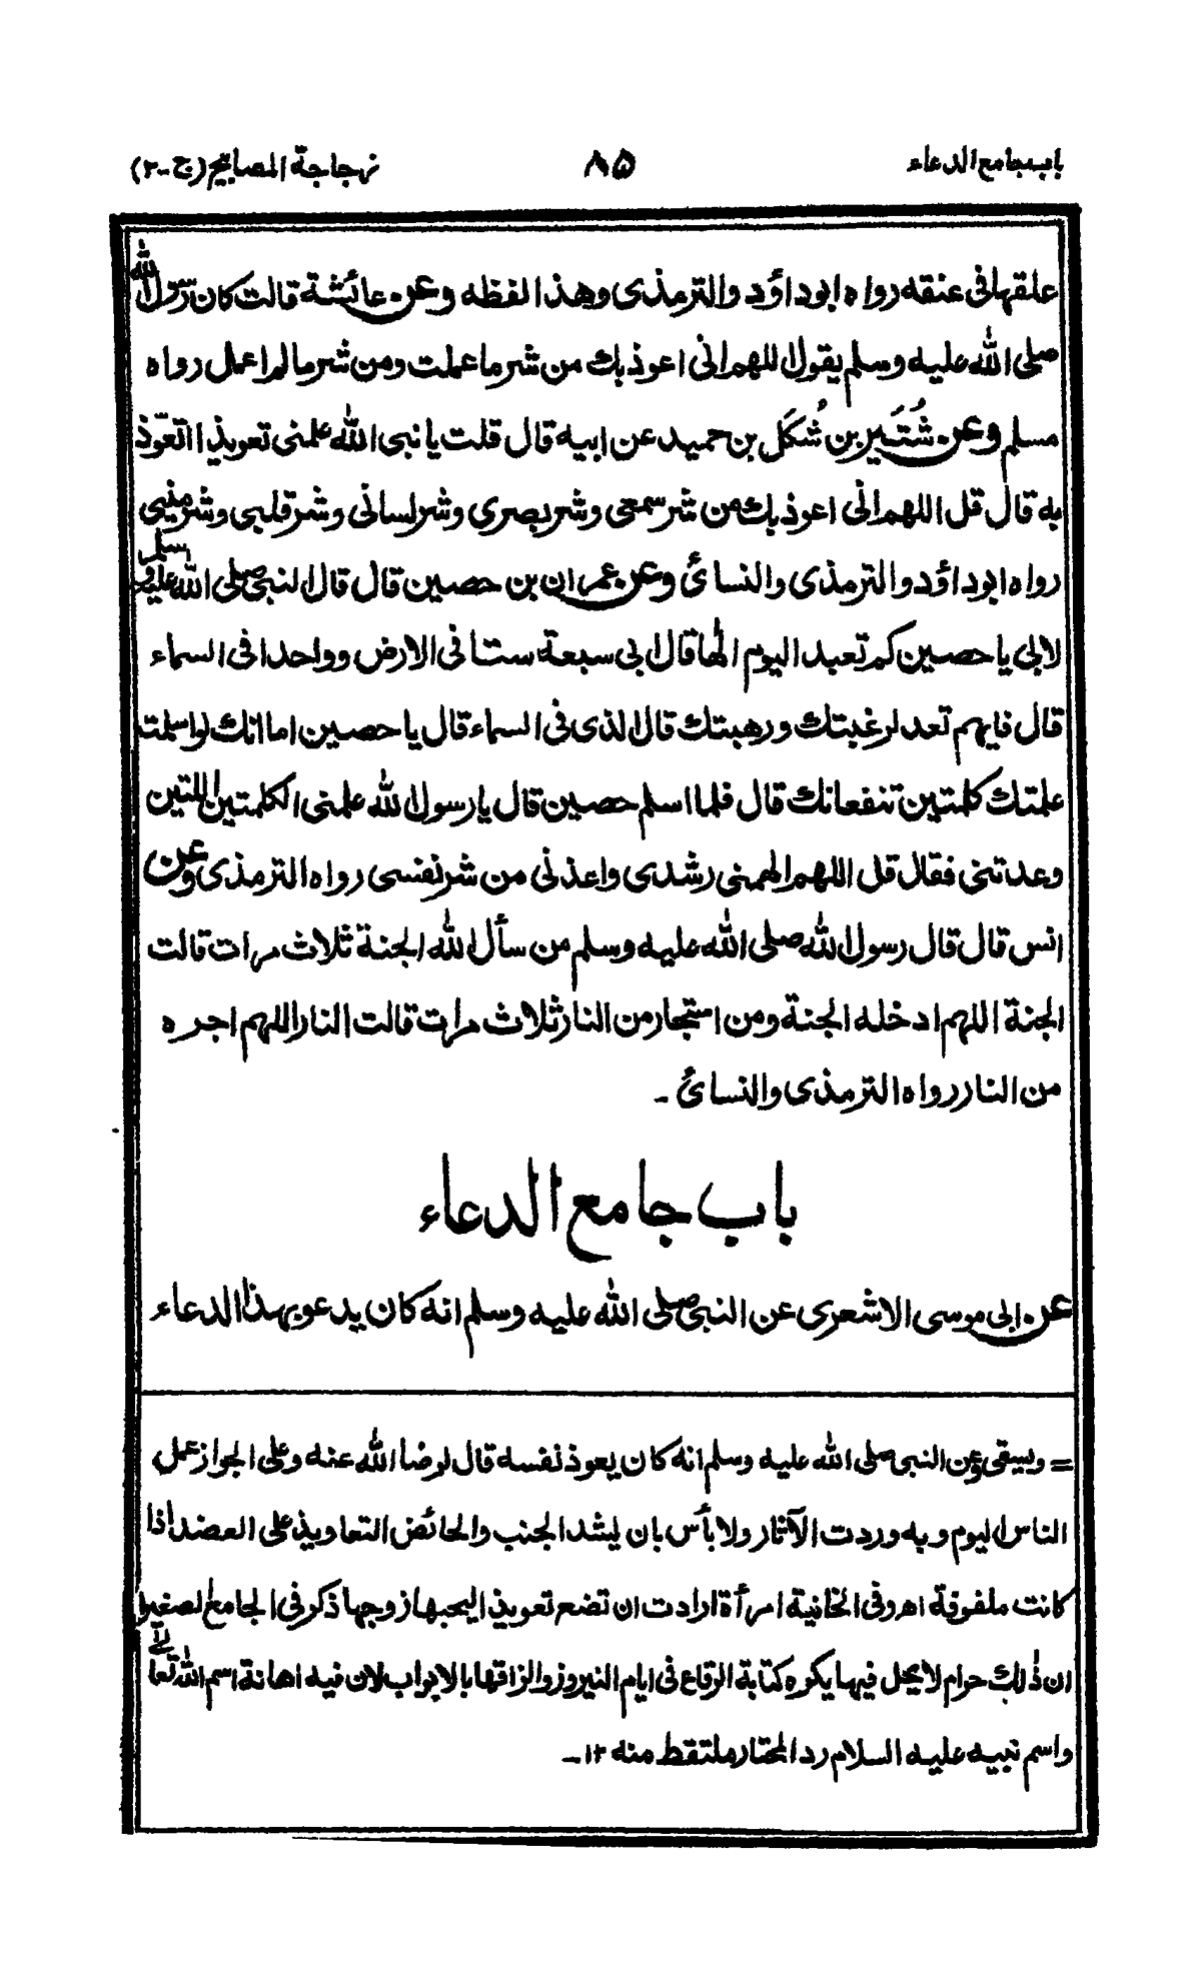 باب جامع الدعاء ٨٥ زجاجة المصابيح (ج-٢)
علقها فى عنقه رواه ابوداؤد والترمذى وهذا لفظه وعن عائشة قالت كان رسول الله
صلى الله عليه وسلم يقول اللهم انى اعوذ بك من شر ما عملت ومن شر ما لم اعمل رواه
مسلم وعن شُتَير بن شُكَل بن حميد عن ابيه قال قلت يا نبى الله علمنى تعويذا اتعوّذ
به قال قل اللهم انى اعوذ بك من شر سمعى وشر بصرى وشر لسانى وشر قلبى وشر منيى
رواه ابوداؤد والترمذى والنسائ وعن عمران بن حصين قال قال النبى صلى الله عليه وسلم
لابى يا حصين كم تعبد اليوم الٰها قال ابى سبعة ستا فى الارض وواحدا فى السماء
قال فايهم تعد لرغبتك ورهبتك قال الذى فى السماء قال يا حصين اما انك لو اسلمت
علمتك كلمتين تنفعانك قال فلما اسلم حصين قال يا رسول الله علمنى الكلمتين اللتين
وعدتنى فقال قل اللهم الهمنى رشدى واعذنى من شر نفسى رواه الترمذى وعن
انس قال قال رسول الله صلى الله عليه وسلم من سأل الله الجنة ثلاث مرات قالت
الجنة اللهم ادخله الجنة ومن استجار من النار ثلاث مرات قالت النار اللهم اجره
من النار رواه الترمذى والنسائ ۔
باب جامع الدعاء
عن ابى موسى الاشعرى عن النبى صلى الله عليه وسلم انه كان يدعو بهذا الدعاء
= ويسقى وعن النبى صلى الله عليه وسلم انه كان يعوذ نفسه قال رضا الله عنه وعلى الجواز عمل
الناس اليوم وبه وردت الآثار ولا بأس بان يشد الجنب والحائض التعاويذ على العضد اذا
كانت ملفوفة اھ وفى الخانية امرأة ارادت ان تضع تعويذا ليحبها زوجها ذكر فى الجامع الصغير
ان ذٰلك حرام لا يحل فيها يكره كتابة الرقاع فى ايام النيروز والزاقها بالابواب لان فيه اهانة اسم الله تعالى
واسم نبيه عليه السلام رد المحتار ملتقط منه ١٢۔